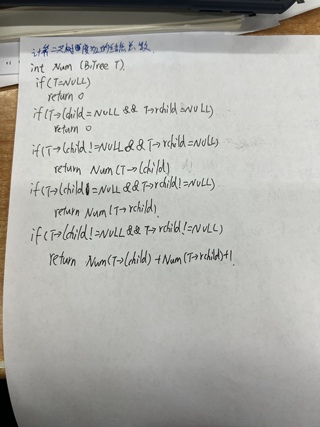 计算二叉树中度为2的结点总数
int Num (BiTree T)
if(T=NULL)
return 0
if(T→lchild=NULL && T→rchild=NULL)
return 0
if(T→lchild!=NULL && T→rchild=NULL)
return Num(T→lchild)
if(T→lchild=NULL && T→rchild!=NULL)
return Num(T→rchild)
if(T→lchild!=NULL && T→rchild!=NULL)
return Num(T→lchild)+Num(T→rchild)+1